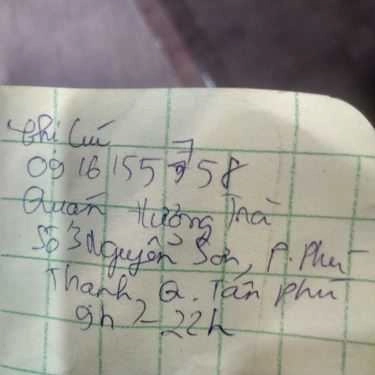 Chị Cúc
0916 155 758
Quán Hưởng Trà
Số 3 Nguyễn Sơn, P. Phú
Thạnh, Q. Tân phú
9h - 22h